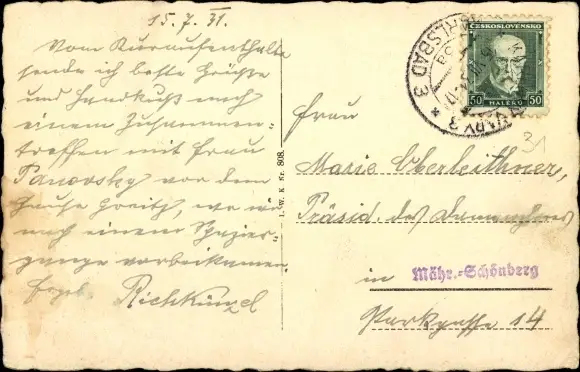 15. 7. 31.
Vom Kuraufenthalte
sende ich beste Grüsse
und Handkuß nach
einem Zusammen-
treffen mit Frau
Panovsky vor dem
Hause, wo wir
nach einem Spazier-
gange vorbeikamen
Ergeb. Richkünzel
I. W. K Nr. 808.
ČESKOSLOVENSKO
50 HALÉŘŮ 50
KARLSBAD 3
VARY 3
Frau
Marie Oberleithner,
Präsid. des
in Mähr.-Schönberg
Parkgasse 14
31